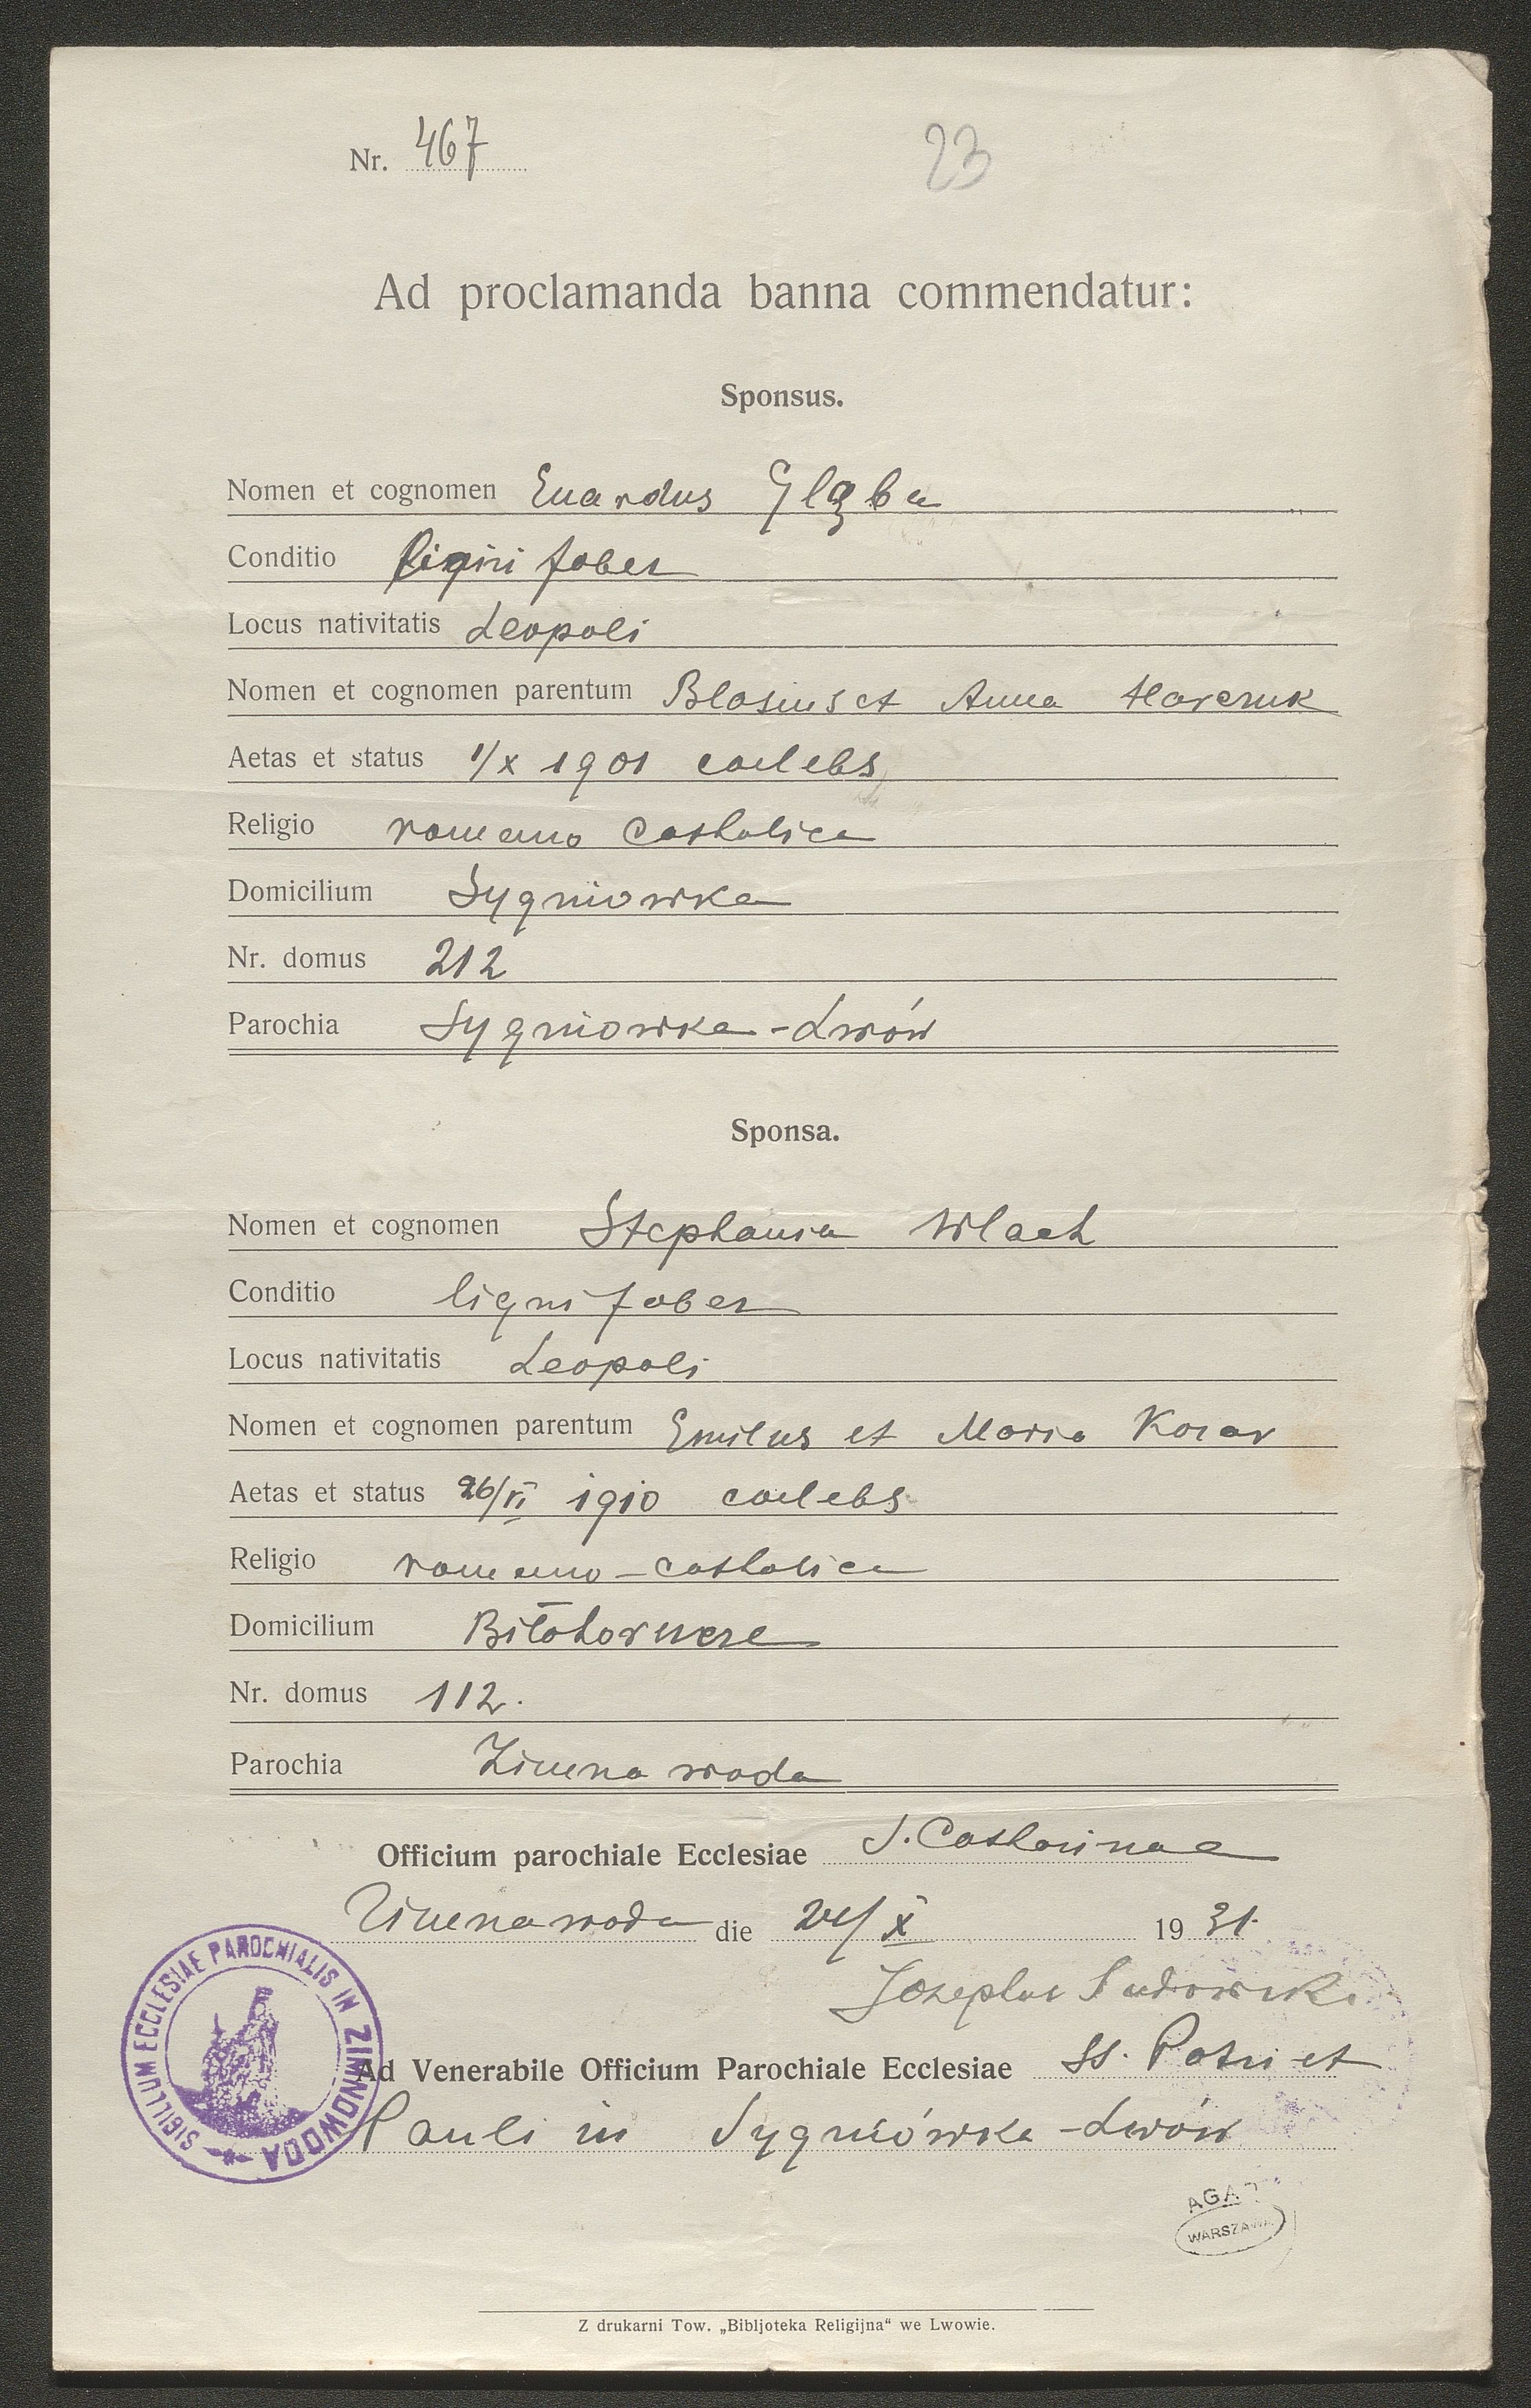 Nr. 467
23
Ad proclamanda banna commendatur:
Sponsus.
Nomen et cognomen Euardus Głąba
Conditio ligni faber
Locus nativitatis Leopoli
Nomen et cognomen parentum Blasius et Anna Harczuk
Aetas et status 1/X 1901 caelebs
Religio romano catholica
Domicilium Sygniowka
Nr. domus 212
Parochia Sygniowka-Lwów
Sponsa.
Nomen et cognomen Stephania Wlach
Conditio ligni faber
Locus nativitatis Leopoli
Nomen et cognomen parentum Emilus et Maria
Aetas et status 26/VI 1910 caelebs
Religio romano-catholica
Domicilium Biłohorszcze
Nr. domus 112.
Parochia Zimna woda
Officium parochiale Ecclesiae S. Catharinae
Zimna woda die /X 1931.
Josephus
SIGILLUM ECCLESIAE PAROCHIALIS IN ZIMNOWODA
Ad Venerabile Officium Parochiale Ecclesiae SS. Petri et
Pauli in Sygniówka-Lwów
AGAD
WARSZAWA
Z drukarni Tow. „Bibljoteka Religijna“ we Lwowie.